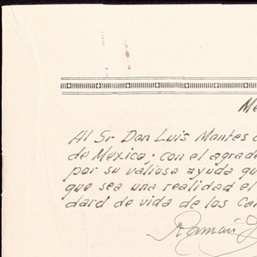 Al Sr. Don Luis Montes
de Mexico; con el agrade
por su valiosa ayuda qu
que sea una realidad el
dard de vida de los Ca
Ramón